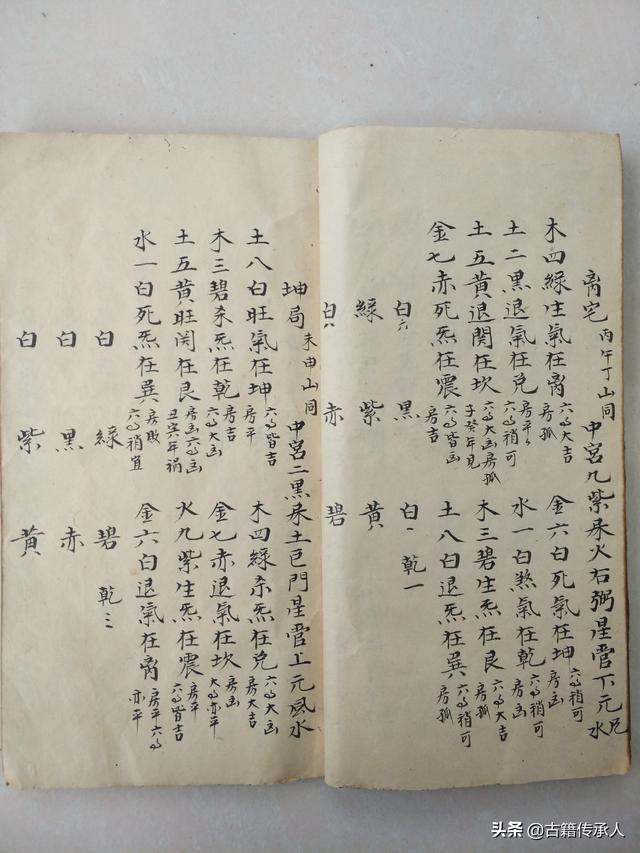 離宅 丙午丁山同 中宮九紫屬火右弼星管下元水
木四綠生氣在离 六事大吉 房孤
金六白死氣在坤 六事稍可 房凶
土二黑退氣在兌 房平 六事稍可
水一白煞氣在乾 六事稍可 房凶
土五黃退関在坎 六事大凶房孤 子癸年見
木三碧生炁在艮 六事大吉 房孤
金七赤死炁在震 六事皆凶 房吉
土八白退炁在巽 六事稍可 房孤
白六 黑 白一 乾一
綠 紫 黃
白八 赤 碧
坤局 未申山同 中宮二黑屬土巨門星管上元風水
土八白旺氣在坤 六事皆吉 房平
木四綠杀炁在兌 六事大凶 房大吉
木三碧杀炁在乾 房吉 六事大凶
金七赤退氣在坎 房凶 六事亦平
土五黃旺関在艮 房凶六事凶 丑寅年禍
火九紫生炁在震 房平 六事皆吉
水一白死炁在巽 房敗 六事稍宜
金六白退氣在离 房平六事 亦平
白 綠 碧 乾三
白 黑 赤
白 紫 黃
头条 @古籍传承人